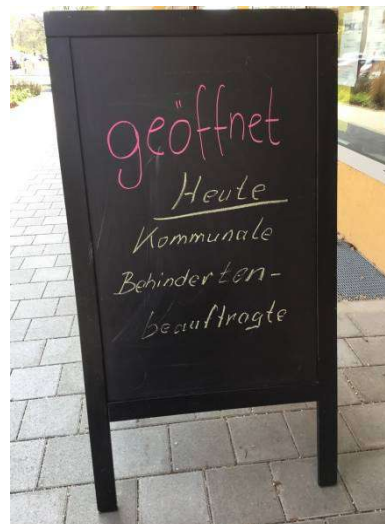 geöffnet
Heute
Kommunale
Behinderten-
beauftragte